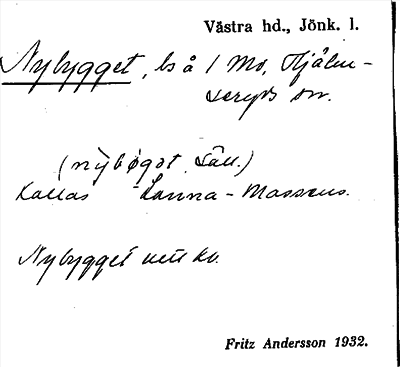 Västra hd., Jönk. l.
Nybygget, ls å 1 Mo, Hjälm-
seryds sn.
(nỳbøgət, säll.)
Kallas Lanna-Massens.
Nybygget nu
Fritz Andersson 1932.